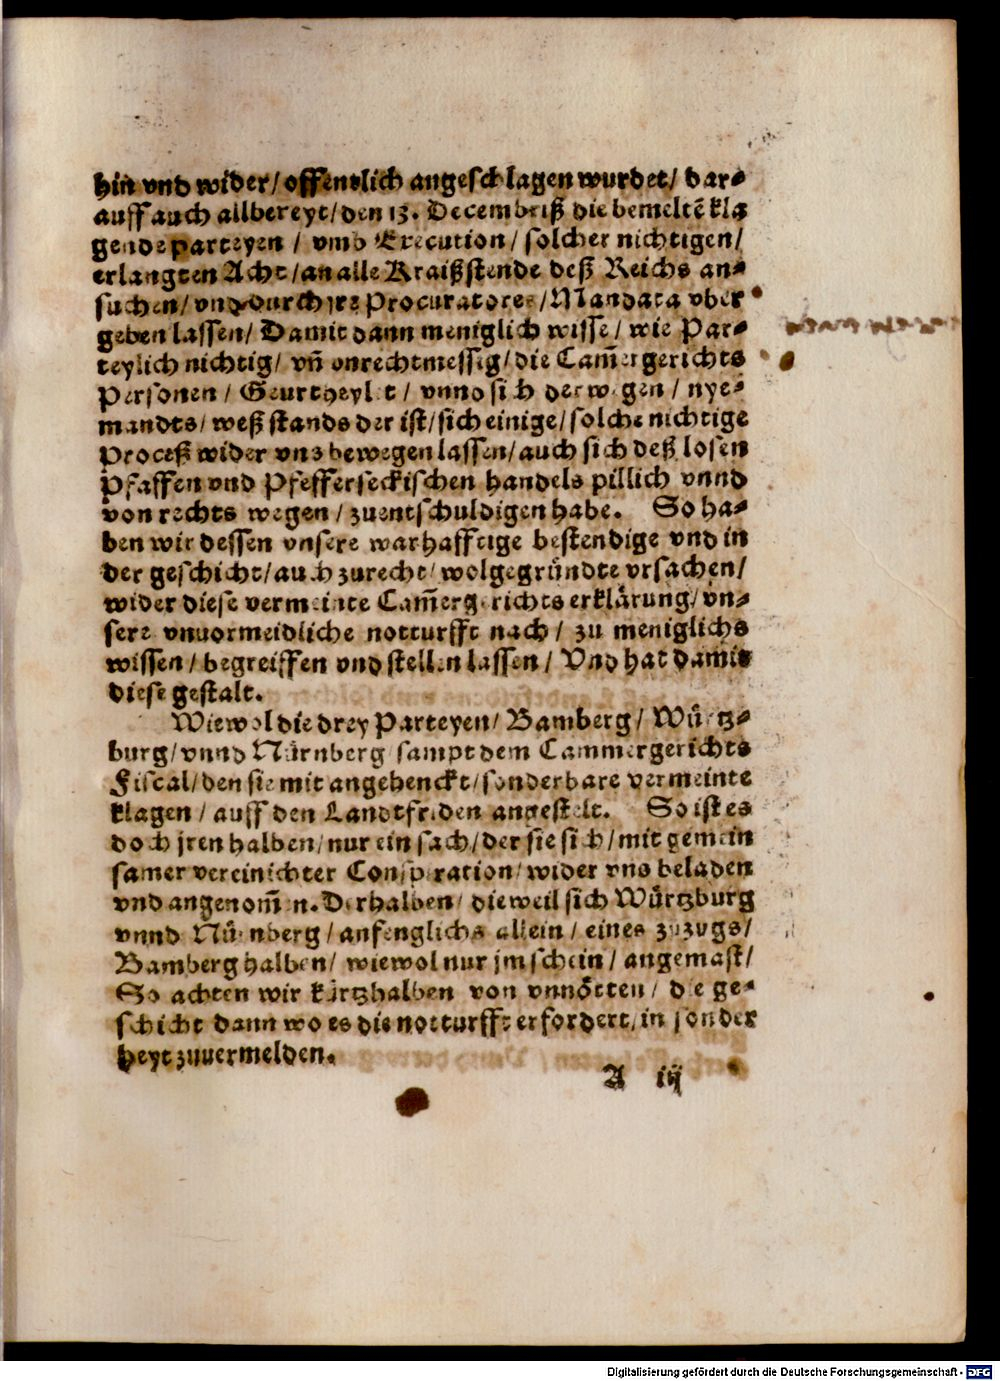 hin vnd wider/ offentlich angeschlagen wurdet/ dar⸗
auff auch allbereyt/ den 13. Decembriß die bemeltē kla
gende parteyen / vmb Execution/ solcher nichtigen/
erlangten Acht/ an alle Kraißstende deß Reichs an⸗
suchen/ vnd durch jre Procuratores/ Mandata vber
geben lassen/ Damit dann meniglich wisse/ wie Par⸗
teylich nichtig/ vñ onrechtmessig/ die Cam̄ergerichts
Personen / Geurtheylet / vnnd sich derwegen / nye⸗
mandts/ weß stands der ist/ sich einige/ solche nichtige
Proceß wider vns bewegen lassen/ auch sich deß losen
Pfaffen vnd Pfefferseckischen handels pillich vnnd
von rechts wegen / zuentschuldigen habe. So ha⸗
ben wir dessen vnsere warhafftige bestendige vnd in
der geschicht/ auch zurecht/ wolgegründte vrsachen/
wider diese vermeinte Cam̄ergerichts erklärung/ vn⸗
sere vnuormeidliche notturfft nach/ zu meniglichs
wissen/ begreiffen vnd stellen lassen/ Vnd hat damit
diese gestalt.
Wiewol die drey Parteyen/ Bamberg/ Würtz⸗
burg/ vnnd Nürnberg sampt dem Cammergerichts
Fiscal/ den sie mit angehenckt/ sonderbare vermeinte
klagen / auff den Landtfriden angestelt. So ist es
doch jren halben/ nur ein sach/ der sie sich/ mit gemein
samer vereinichter Conspiration/ wider vns beladen
vnd angenom̄en. Derhalben/ dieweil sich Würtzburg
vnnd Nürnberg/ anfenglichs allein/ eines zuzugs/
Bamberg halben/ wiewol nur jm schein/ angemast/
So achten wir kürtzhalben von vnnötten/ die ge⸗
schicht dann wo es die notturfft erfordert/ in sonder
heyt zuuermelden.
A iij
Digitalisierung gefördert durch die Deutsche Forschungsgemeinschaft - DFG